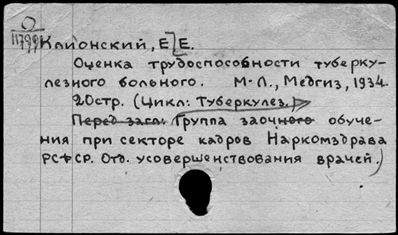 О
11799
Клионский, Е. Е.
Оценка трудоспособности туберку-
лезного больного. М-Л., Медгиз, 1934
20стр. (Цикл: Туберкулез.)
Перед загл: Группа заочного обуче-
ния при секторе кадров Наркомздрава
РСФСР. Отд. усовершенствования врачей.)